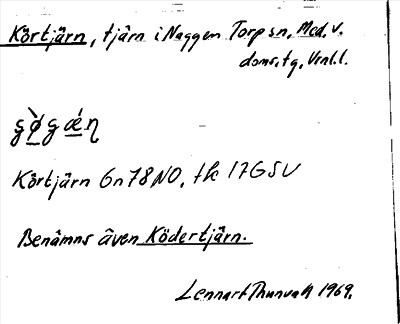 Körtjärn, tjärn i Naggen Torp sn, Med. v.
doms.tg, Vrnl.l.
Körtjärn 6n78NO, tk 17GSV
Benämns även Ködertjärn.
Lennart Thunvall 1969.